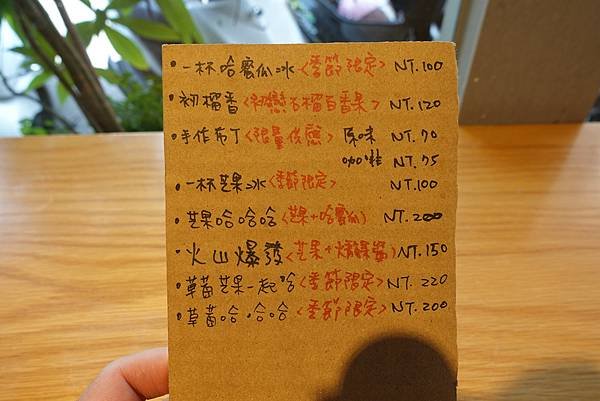 ·一杯哈蜜瓜冰<季節限定> NT.100
·初榴香<初戀石榴百香果> NT.120
·手作布丁<限量供應> 原味 NT.70
咖啡 NT.75
·一杯芒果冰<季節限定> NT.100
·芒果哈哈哈<芒果+哈蜜瓜> NT.200
·火山爆發<芒果+爆醬> NT.150
·草莓芒果一起哈<季節限定> NT.220
·草莓哈哈哈<季節限定> NT.200